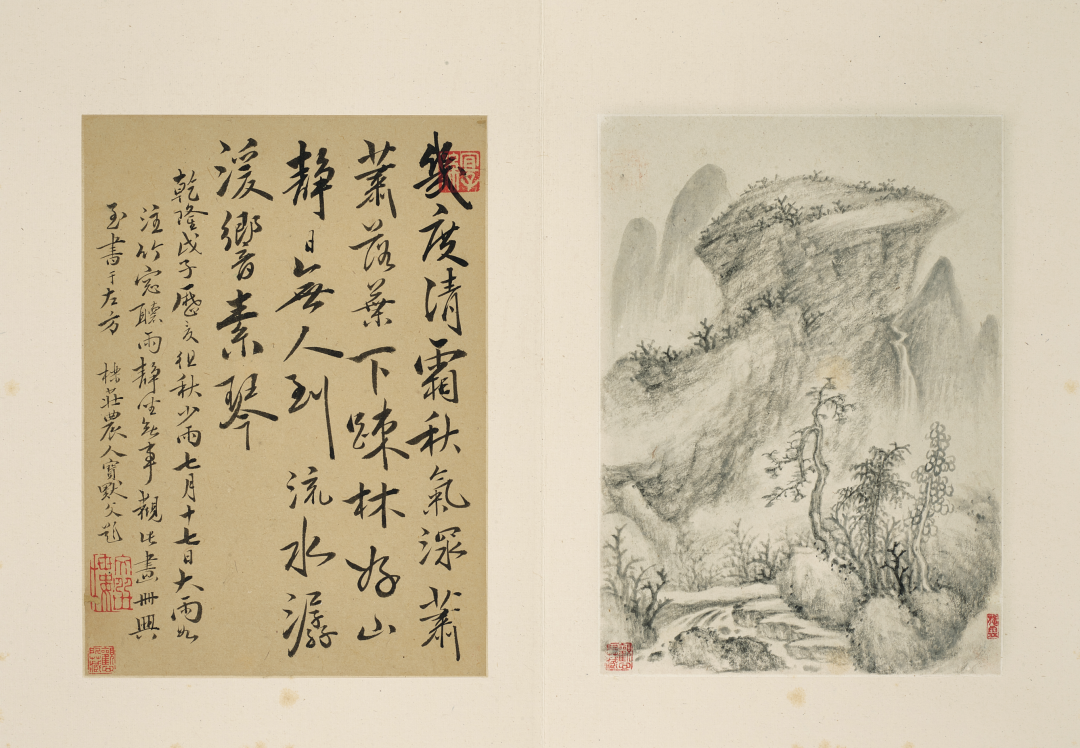 幾度清霜秋氣深蕭
蕭落葉下踈林好山
靜日無人到流水潺
湲響素琴
乾隆戊子歷亥徂秋少雨七月十七日大雨如
注竹窓聽雨靜坐無事觀此畫冊興
至書于左方 農人寶默父題